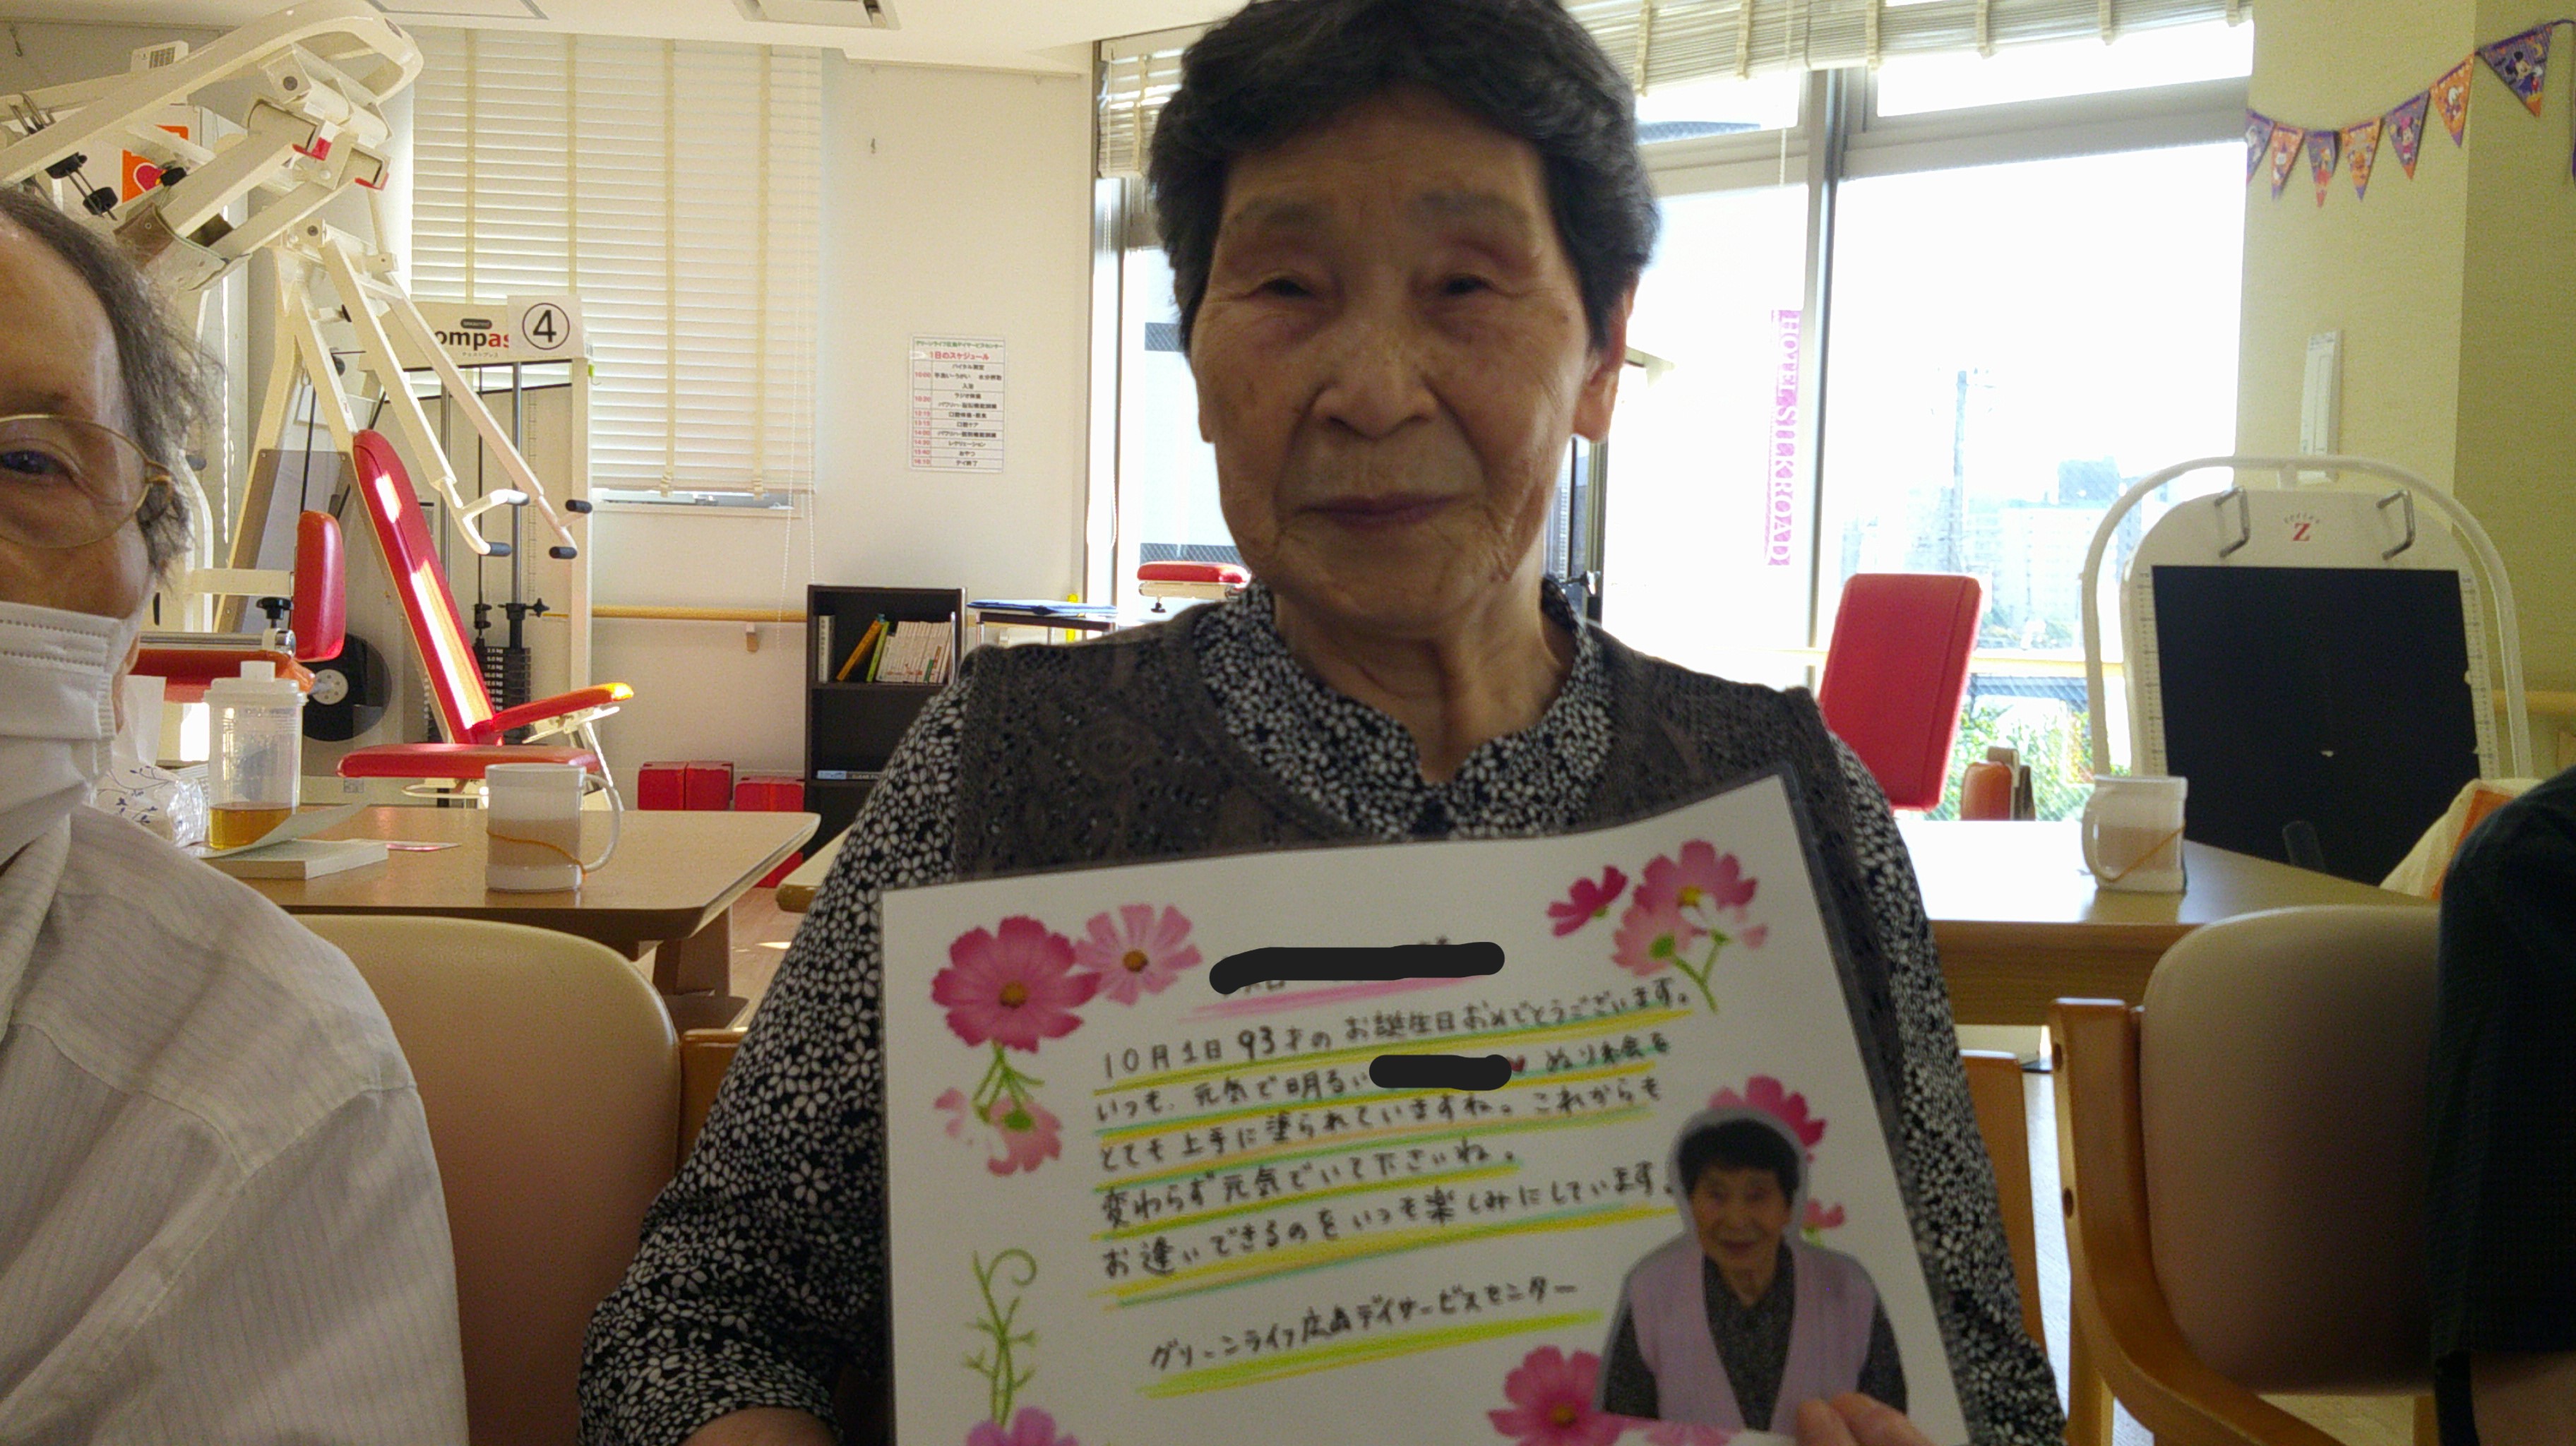 ompas
4
グリーンライフ広島デイサービスセンター
1日のスケジュール
10:00
入浴
ラジオ体操
レクリエーション
おやつ
デイ終了
Z
10月1日 93才の お誕生日おめでとうございます。
いつも、元気で明るい ぬり絵を
とても上手に塗られていますね。これからも
変わらず元気でいて下さいね。
お逢いできるのをいつも楽しみにしています。
グリーンライフ広島デイサービスセンター